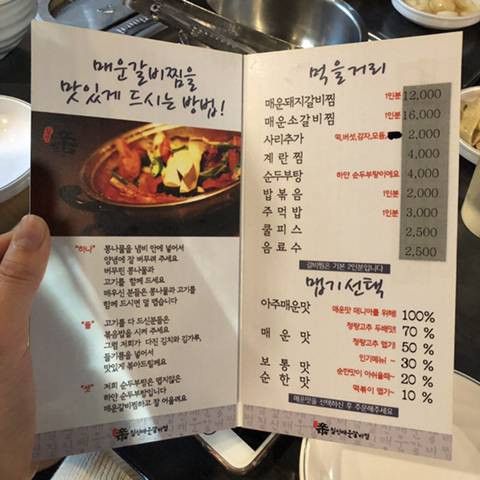 매운갈비찜을
맛있게 드시는 방법!
"하나" 콩나물을 냄비 안에 넣어서
양념에 잘 버무려 주세요
버무린 콩나물과
고기를 함께 드세요
매우신 분들은 콩나물과 고기를
함께 드시면 덜 맵습니다
"둘" 고기를 다 드신분들은
볶음밥을 시켜 주세요
그럼 저희가 다진 김치와 김가루,
들기름을 넣어서
맛있게 볶아드릴께요
"셋" 저희 순두부탕은 맵지않은
하얀 순두부탕입니다
매운갈비찜하고 잘 어울려요
일신매운갈비찜
먹을거리
매운돼지갈비찜 1인분 12,000
매운소갈비찜 1인분 16,000
사리추가 떡,버섯,감자,모듬, 2,000
계란찜 4,000
순두부탕 하얀 순두부탕이에요 4,000
밥볶음 1인분 2,000
주먹밥 1인분 3,000
쿨피스 2,500
음료수 2,500
갈비찜은 기본 2인분입니다
맵기선택
아주매운맛 매운맛 매니아를 위해! 100%
청량고추 두배맛! 70 %
매운맛 청량고추 맵기! 50 %
보통맛 인기메뉴! ~ 30 %
순한맛 순한맛이 아쉬울때~ 20 %
떡볶이 맵기~ 10 %
매운맛을 선택하신 후 주문해주세요
일신매운갈비찜